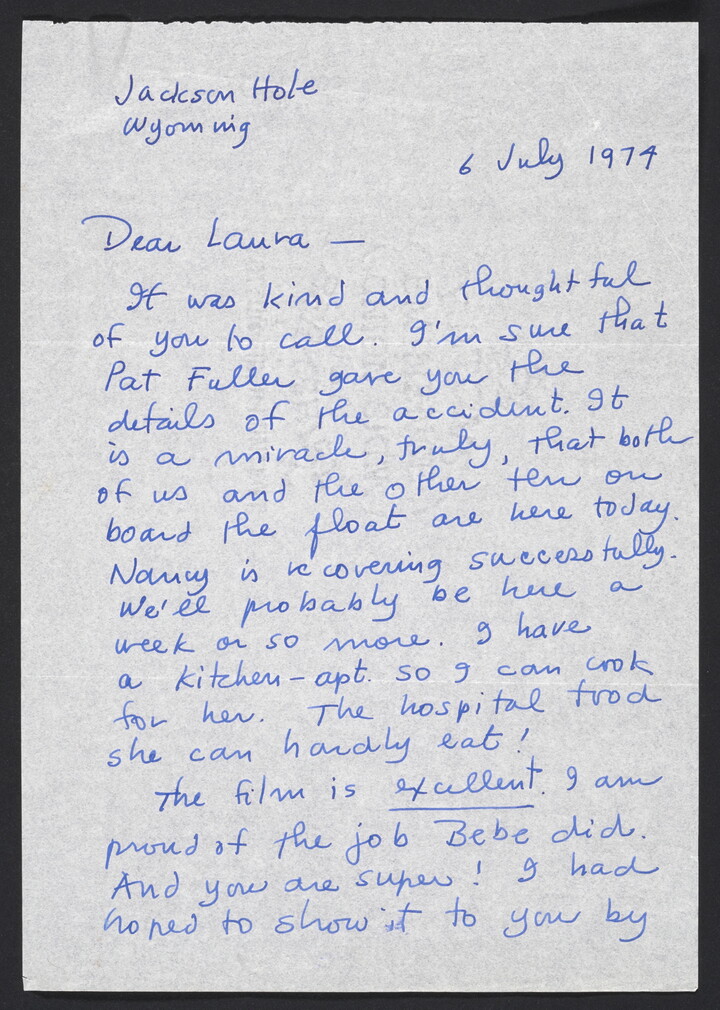 Jackson Hole
Wyoming
6 July 1974
Dear Laura —
It was kind and thoughtful
of you to call. I'm sure that
Pat Fuller gave you the
details of the accident. It
is a miracle, truly, that both
of us and the other ten on
board the float are here today.
Nancy is recovering successfully.
We'll probably be here a
week or so more. I have
a kitchen-apt. so I can cook
for her. The hospital food
she can hardly eat!
The film is excellent. I am
proud of the job Bebe did.
And you are super! I had
hoped to show it to you by